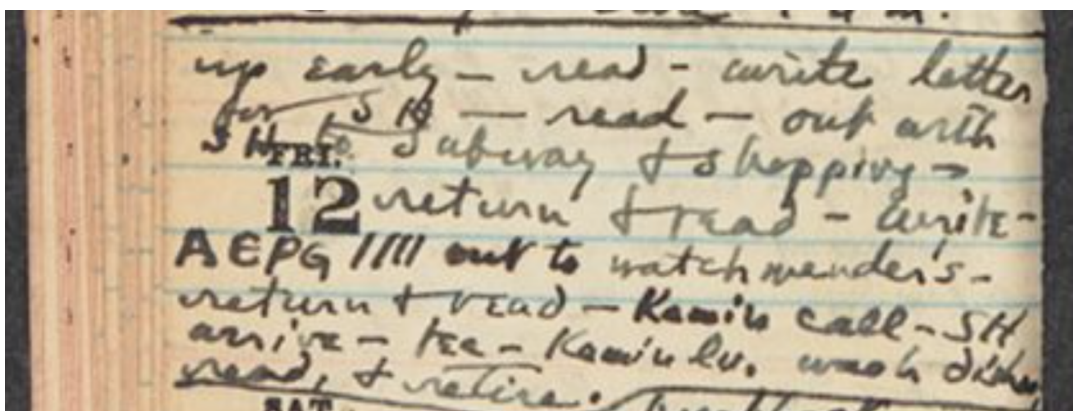 up early – read – write letter
for SH — read — out with
SH to Subway & shopping –
FRI.
12 return & read – write –
AEPG //// out to watch mender's –
return & read – Kamin call – SH
arrive – tea – Kamin lv. wash dishes
read, & retire.
SAT